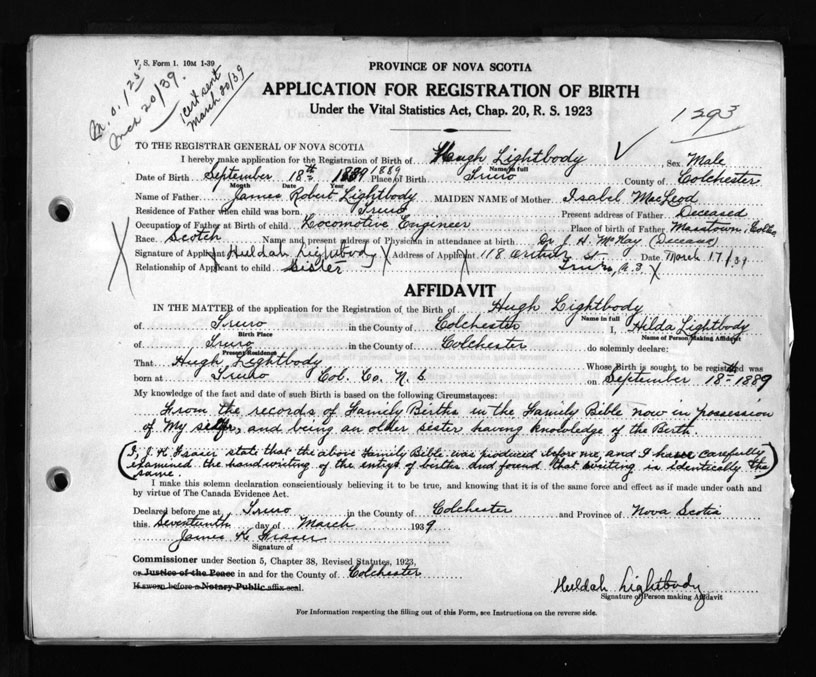 V. S. Form 1. 10M 1-39
M.O. 1 25
Mch 20/39.
Cert sent
March 20/39
PROVINCE OF NOVA SCOTIA
APPLICATION FOR REGISTRATION OF BIRTH
Under the Vital Statistics Act, Chap. 20, R. S. 1923
1293
TO THE REGISTRAR GENERAL OF NOVA SCOTIA
I hereby make application for the Registration of Birth of Hugh Lightbody Sex Male
Name in full
Date of Birth September 18th 1889 1889 Place of Birth Truro County of Colchester
Month Date Year
Name of Father James Robert Lightbody MAIDEN NAME of Mother Isabel MacLeod
Residence of Father when child was born Truro Present address of Father Deceased
Occupation of Father at Birth of child Locomotive Engineer Place of birth of Father Masstown, Colch
Race Scotch Name and present address of Physician in attendance at birth Dr J. H. McKay (Deceased)
Signature of Applicant Huldah Lightbody Address of Applicant 118 Arthur St. Date March 17/39
Relationship of Applicant to child Sister Truro, N.S.
AFFIDAVIT
IN THE MATTER of the application for the Registration of the Birth of Hugh Lightbody
Name in full
of Truro in the County of Colchester I, Hilda Lightbody
Birth Place Name of Person Making Affidavit
of Truro in the County of Colchester do solemnly declare:
Present Residence
That Hugh Lightbody Whose Birth is sought to be registered was
born at Truro Col. Co. N. S. on September 18th 1889
My knowledge of the fact and date of such Birth is based on the following Circumstances:
From the records of Family Births in the Family Bible now in possession
of My self, and being an older sister having knowledge of the Birth
(I, J. K. Fraser state that the above Family Bible was produced before me, and I have carefully
examined the handwriting of the entry of births and found that writing is identically the
same.)
I make this solemn declaration conscientiously believing it to be true, and knowing that it is of the same force and effect as if made under oath and
by virtue of The Canada Evidence Act.
Declared before me at Truro in the County of Colchester and Province of Nova Scotia
this Seventeenth day of March 1939
James K Fraser
Signature of
Commissioner under Section 5, Chapter 38, Revised Statutes, 1923,
or Justice of the Peace in and for the County of Colchester
If sworn before a Notary Public affix seal.
Huldah Lightbody
Signature of Person making Affidavit
For Information respecting the filling out of this Form, see Instructions on the reverse side.